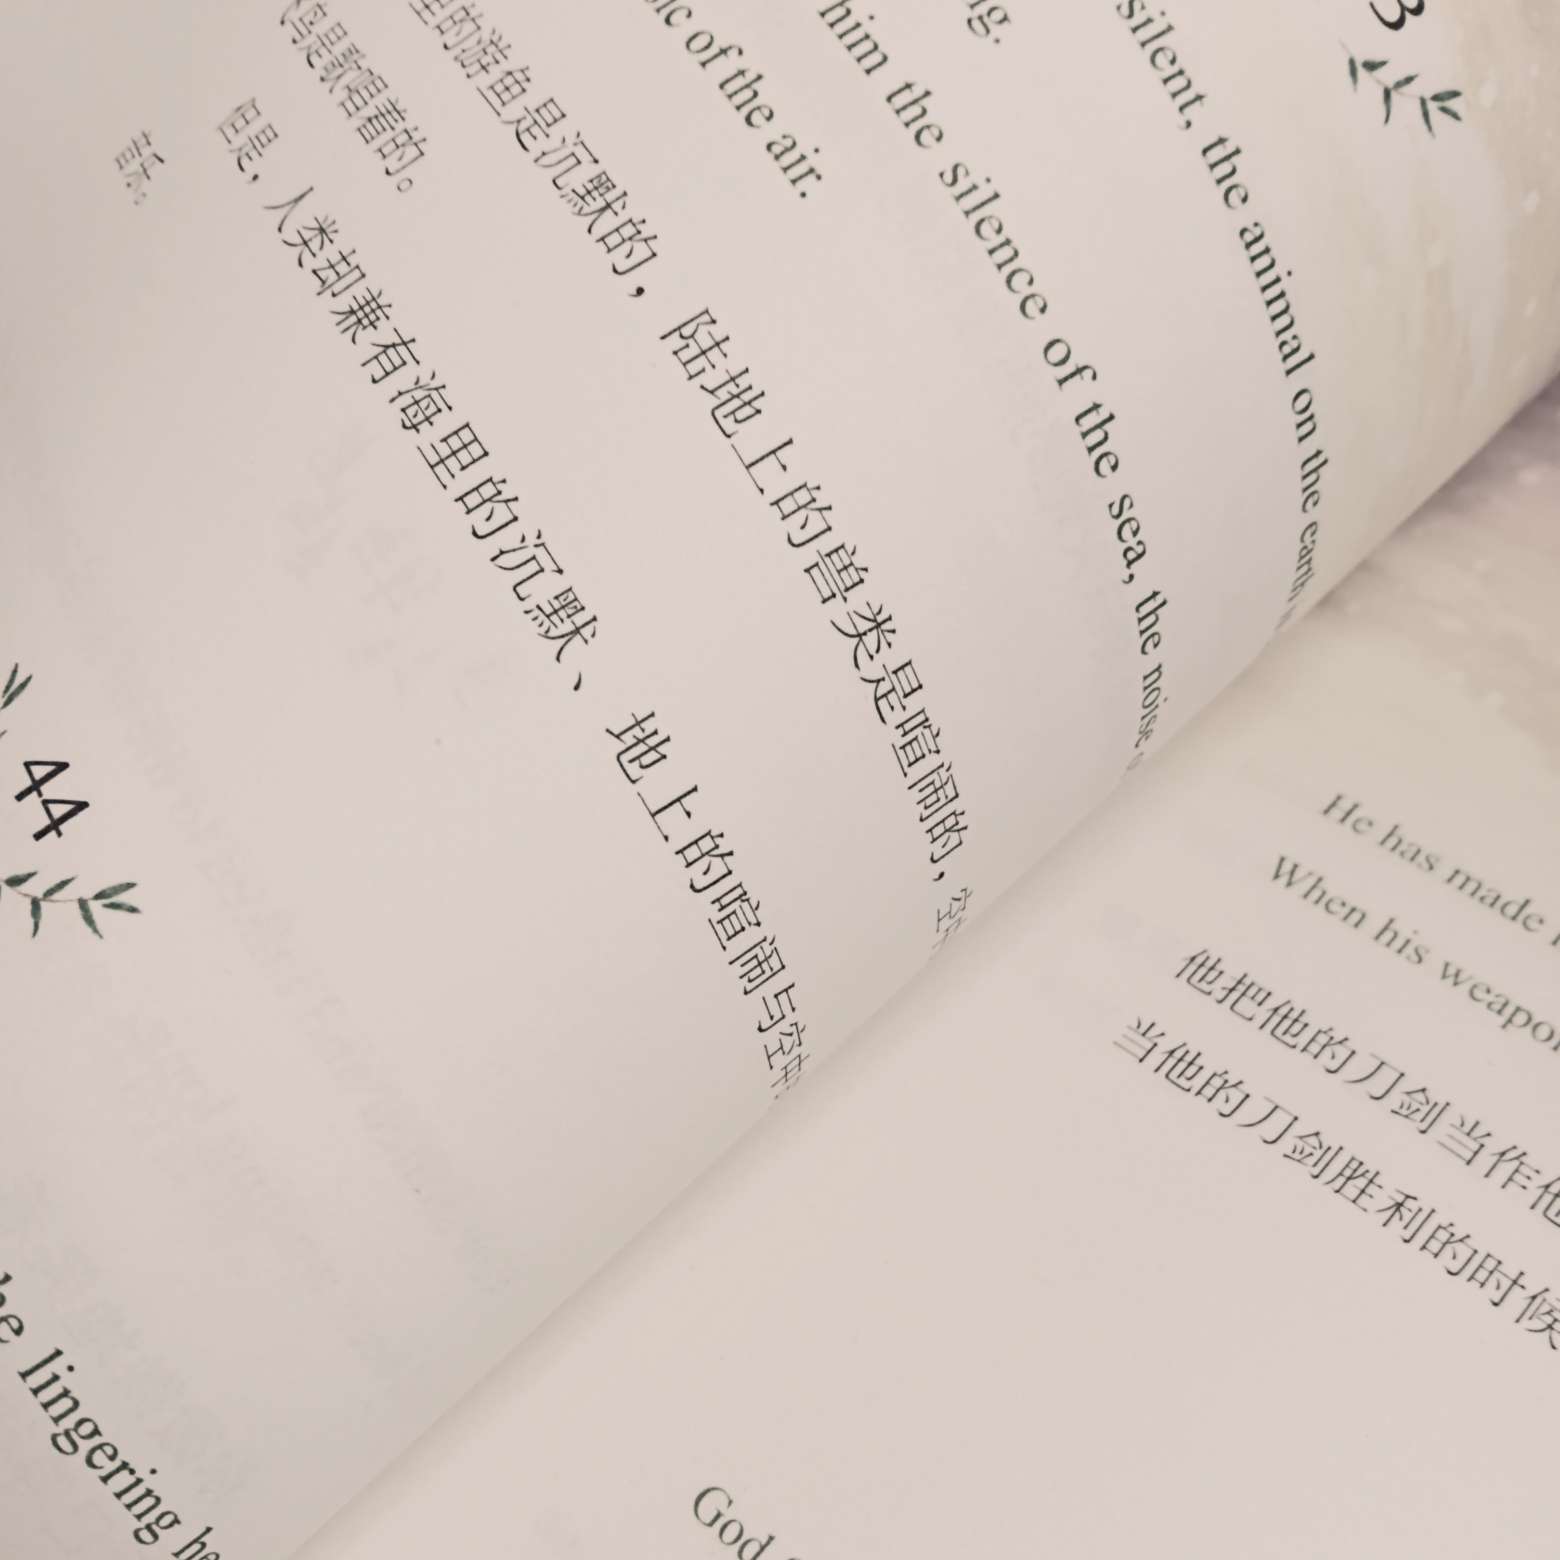 3
silent, the animal on the earth
him the silence of the sea, the noise
of the air.
里的游鱼是沉默的，陆地上的兽类是喧闹的，空中
鸟是歌唱着的。
但是，人类却兼有海里的沉默、地上的喧闹与空中
音乐。
44
lingering
He has made
When his
他把他的刀剑当作他
当他的刀剑胜利的时候
God